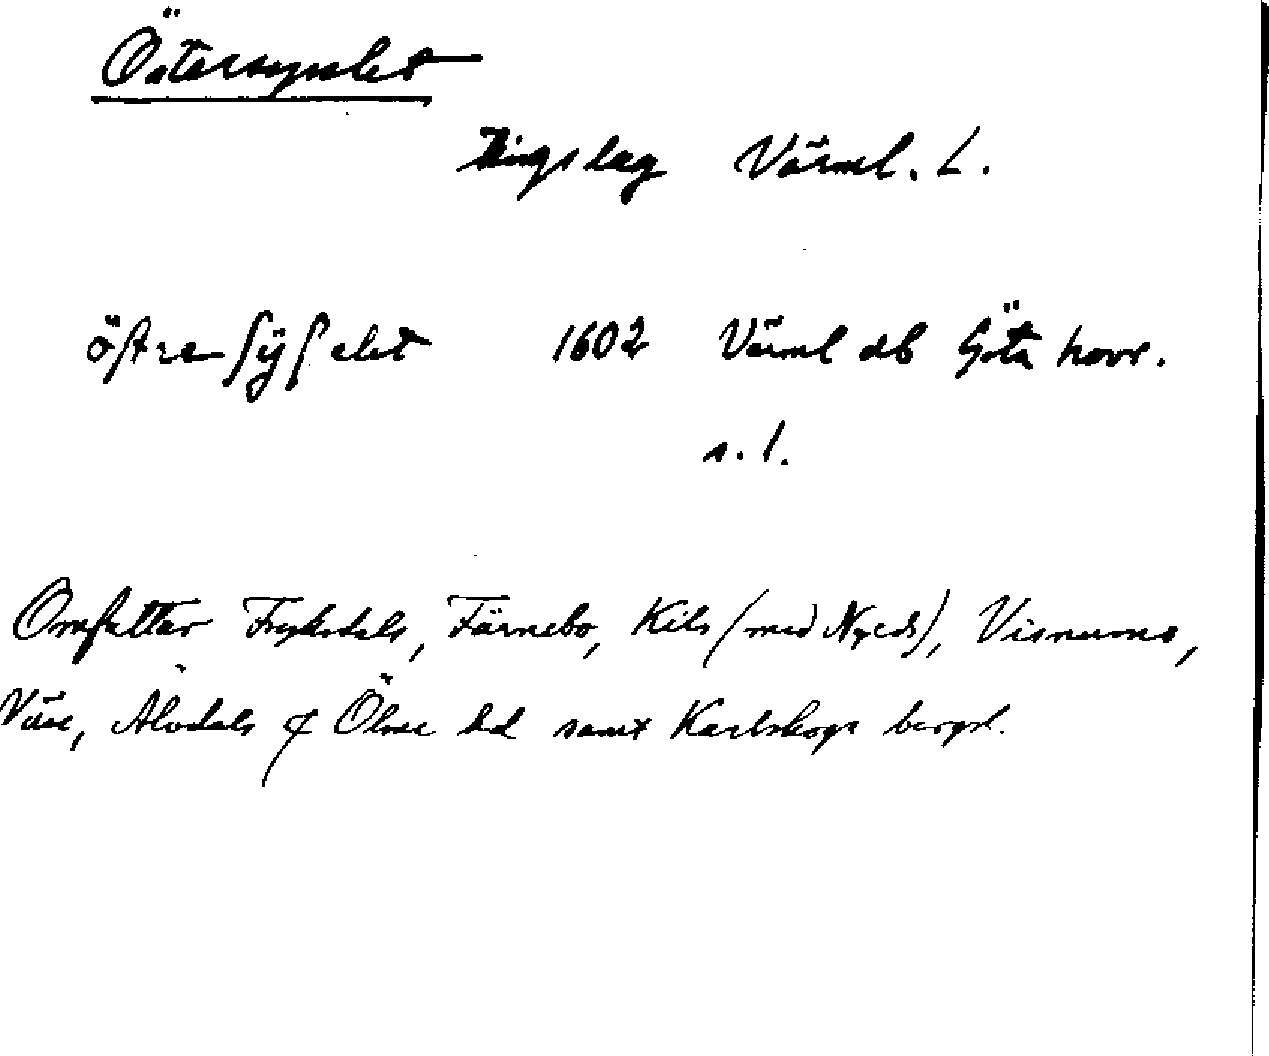 Östersysslet
Tingslag Värml. L.
öftre ſÿſ elet 1602 Värml db Göta hovr.
s. 1.
Omfattar Fryksdals, Färnebo, Kils (med Nyeds), Visnums,
Väse, Älvdals & Ölme hd samt Karlskoga bergsl.